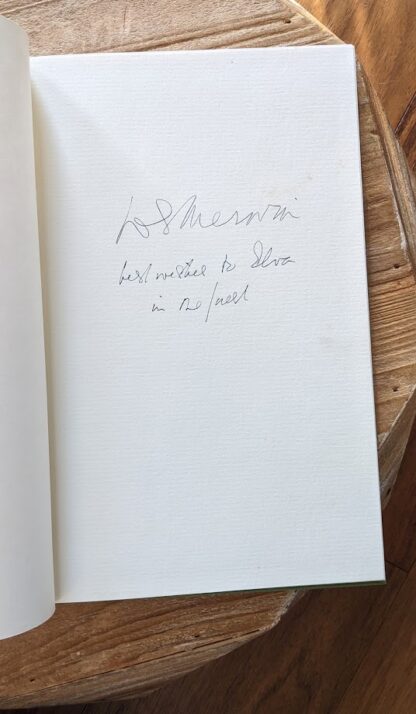 WS Merwin
best wishes to Elva
in the forest